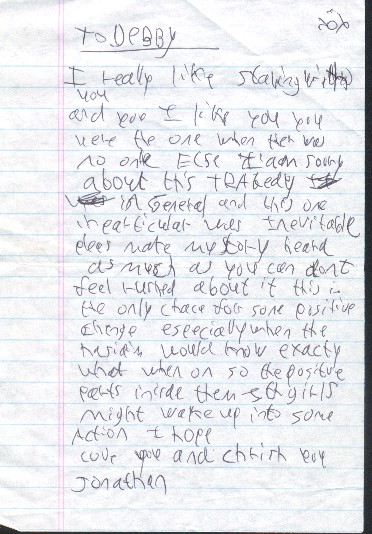 To DEBBY
I really like staying with
you
and you I like you you
were the one when ther was
no one ELSE I am sorry
about this TRAGEDY
in general and this one
in particular was Inevitable
pleas make my story heard
as much as you can dont
feel rushed about it this is
the only chace for some positive
change especially when the
would know exactly
what when on so the positive
parts inside them still
might wake up into some
Action I hope
love you and
Jonathan